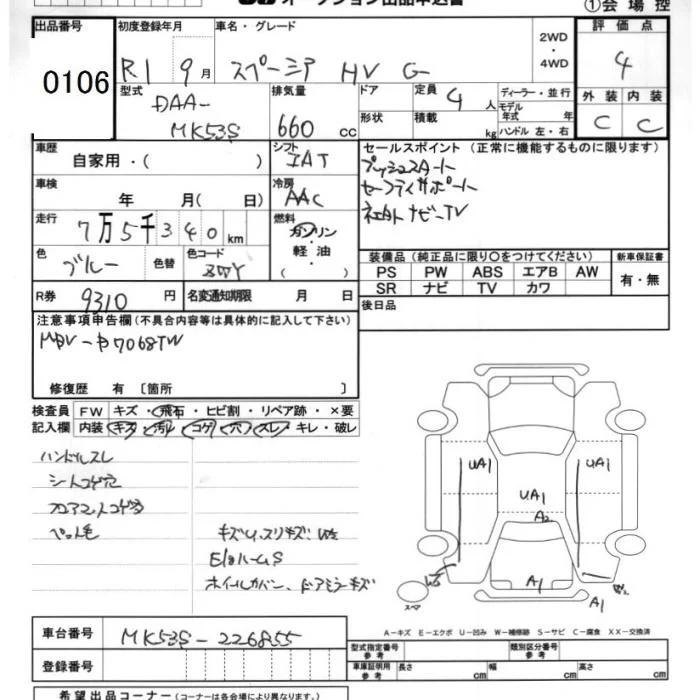 オークション出品申込書
①会場控
出品番号 初度登録年月 車名・グレード 評価点
0106 R1 9月 スペーシア HV G 2WD・4WD 4
型式 DAA-MK53S 排気量 660 cc
ドア 定員 4人 ディーラー・並行
形状 積載 kg モデル年式 年
ハンドル 左・右
外装 内装
C C
車歴 自家用・( ) シフト IAT
車検 年 月( 日) 冷房 AAC
走行 7万5千340km 燃料 ガソリン・軽油・( )
色 ブルー 色替 色コード
R券 9310円 名変通知期限 月 日
セールスポイント(正常に機能するものに限ります)
プッシュスタート
セーフティサポート
ナビーTV
装備品(純正品に限り○をつけてください) 新車保証書
PS PW ABS エアB AW 有・無
SR ナビ TV カワ
後日品
注意事項申告欄(不具合内容等は具体的に記入して下さい)
修復歴 有 〔箇所 〕
検査員 FW キズ・飛石・ヒビ割・リペア跡・×要
記入欄 内装 キズ・汚れ・コゲ・穴・スレ・キレ・破レ
ハンドルスレ
シートコゲ穴
フロアマットコゲ穴
ペット毛
キズU、スリキズ
ホイルカバー、ドアミラーキズ
UA1 UA1
UA1
A2
A1
A1
スペア
A-キズ E-エクボ U-凹み W-補修跡 S-サビ C-腐食 XX-交換済
車台番号 MK53S-226855
登録番号
型式指定番号 参考 類別区分番号 参考
車庫証明用 参考 長さ cm 幅 cm 高さ cm
希望出品コーナー(コーナーは各会場により異なります。)